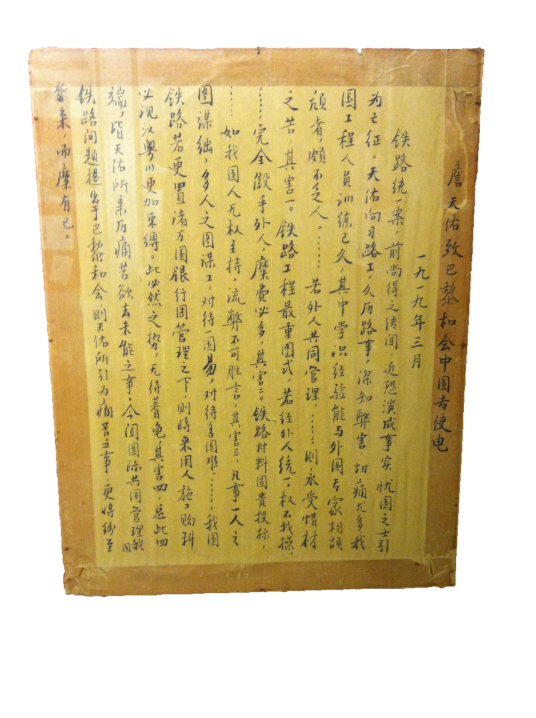 詹天佑致巴黎和会中国专使电
一九一九年三月
铁路统一案，前尚得之传闻，近恐演成事实，忧国之士引
为亡征，天佑向习路工，久历路事，深知弊害，切痛尤多，我
国工程人员训练已久，其中学识经验能与外国专家相颉
颃者颇不乏人。……若外人共同管理，……则永受惜材
之苦，其害一。铁路工程最重图式，若经外人统一，权不我操，
……完全假手外人，糜费必多，其害二。铁路材料图贵投标，
……如我国人无权主持，流弊不可胜言，其害三。凡事一人之
图谋绌，多人之图谋工，对待一国易，对待多国难，……我国
铁路若更置诸万国银行团管理之下，则将来用人施工购料
必视汉粤川更加束缚。此必然之势，无待蓍龟，其害四。总此四
端，皆天佑所亲历痛苦欲去未能之事，今闻国际共同管理我国
铁路问题提出于巴黎和会，则天佑所引为痛苦之事，更将纷至
沓来而糜有已。